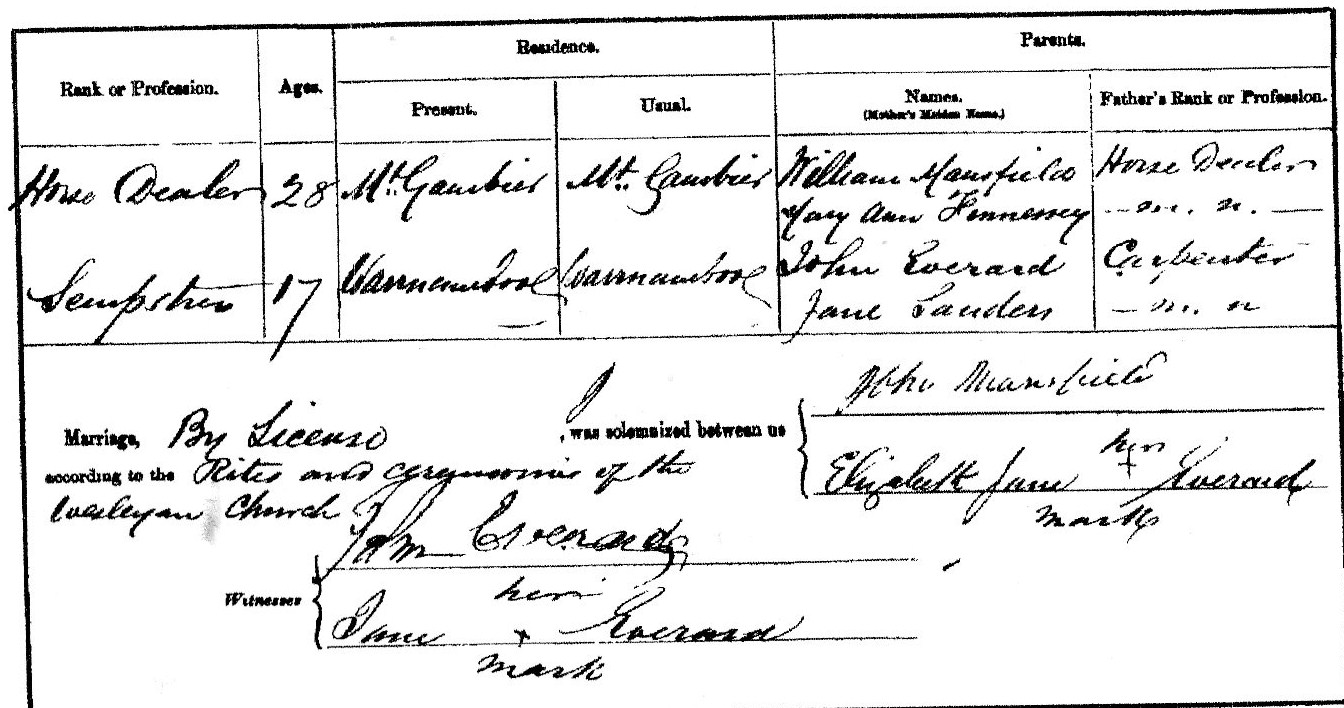 Rank or Profession.
Ages.
Residence.
Parents.
Present.
Usual.
Names.
(Mother's Maiden Name.)
Father's Rank or Profession.
Horse Dealer 28 Mt. Gambier Mt. Gambier William Mansfield Horse Dealer
Mary Ann Hennessey — m. n. —
Sempstress 17 Warrnambool Warrnambool John Everard Carpenter
Jane Sanders — m. n
Marriage, By License , was solemnized between us
John Mansfield
according to the Rites and ceremonies of the
Wesleyan Church
her
Elizabeth Jane + Everard
mark
Witnesses
John Everard
her
Jane + Everard
mark